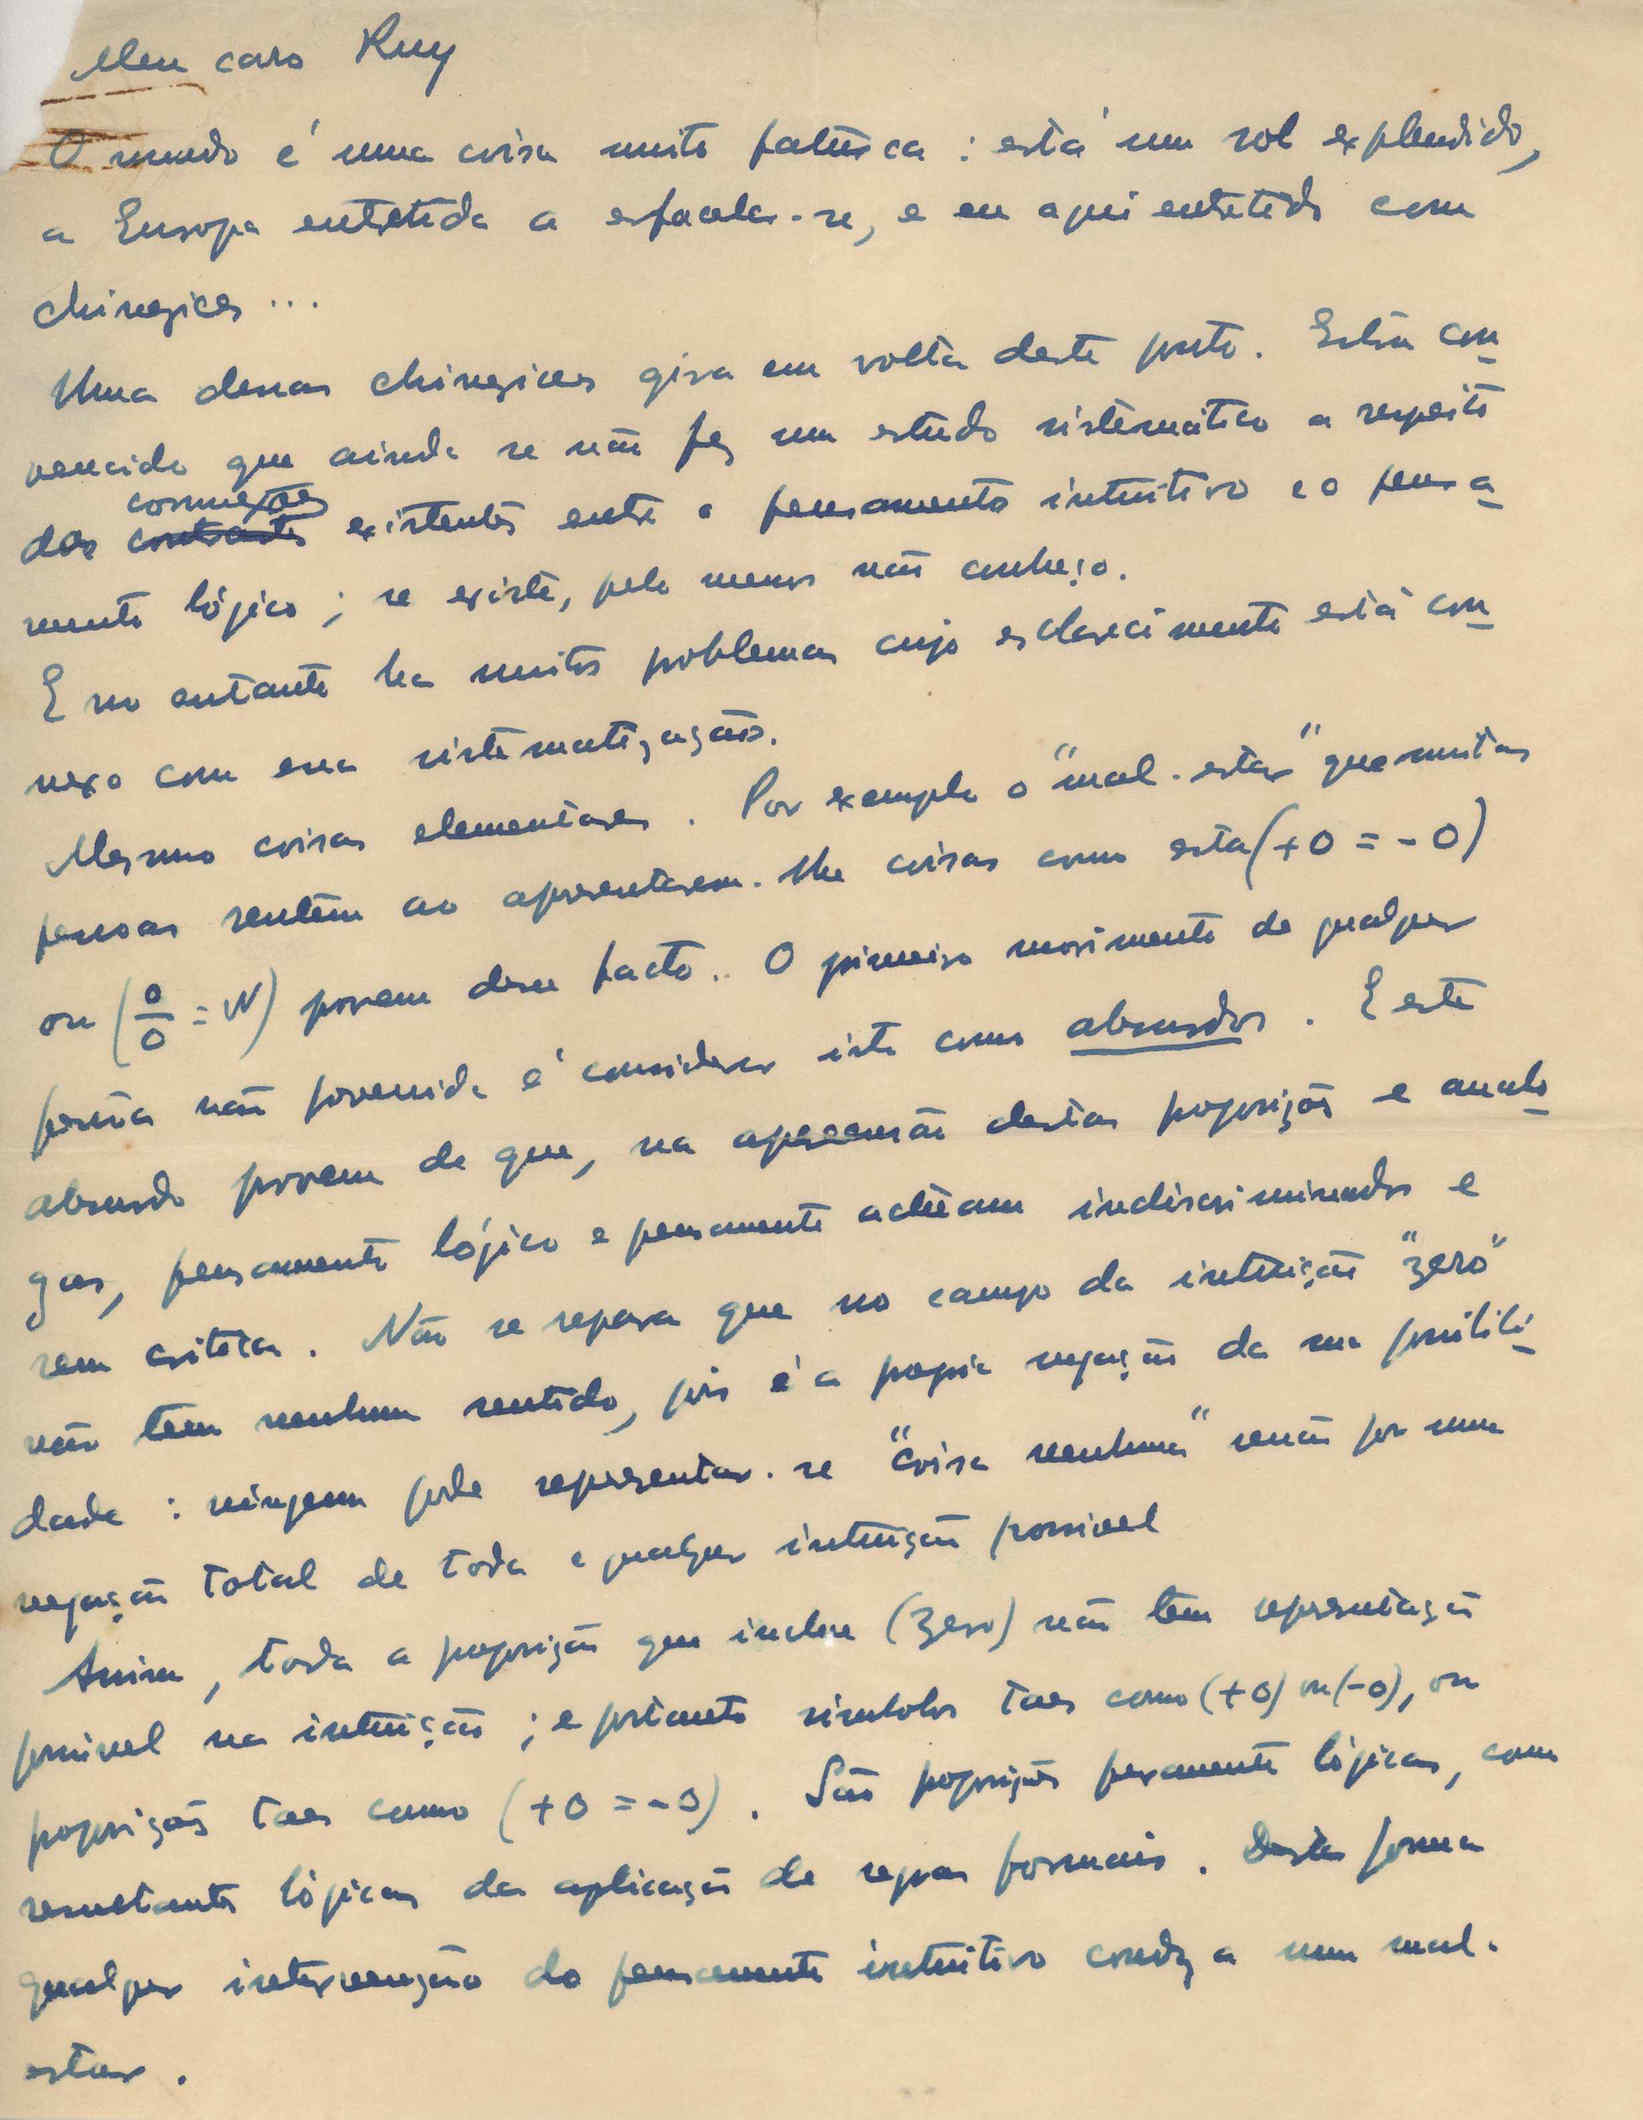 Meu caro Ruy
O mundo é uma coisa muito patusca : está um sol explendido,
a Europa entretida a esfacelar-se, e eu aqui entretido com
chinezices ...
Uma dessas chinezices gira em volta deste ponto. Estou con
vencido que ainda se não fez um estudo sistematico a respeito
das connexões existentes entre o pensamento intuitivo e o pensa
mento lógico ; se existe, pelo menos não conheço.
E no entanto ha muitos problemas cujo esclarecimento está con
nexo com essa sistematização.
Mesmo coisas elementares. Por exemplo o "mal-estar" que muitas
pessoas sentem ao apresentarem-lhe coisas como esta (+0 = -0)
ou (0/0 = N) provem desse facto.. O primeiro movimento de qualquer
pessoa não prevenida é considerar isto como absurdos. E este
absurdo provem de que, na apreensão destas proposições e analo
gas, pensamento lógico e pensamento actuam indiscriminados e
sem critica. Não se repara que no campo da intuição "zero"
não tem nenhum sentido, pois é a propria negação da sua possibili
dade : ninguem pode representar-se "coisa nenhuma" senão por uma
negação total de toda e qualquer intuição possivel
Assim, toda a proposição que inclue (zero) não tem representação
possivel na intuição ; e portanto simbolos taes como (+0) ou (-0), ou
proposições taes como (+0 = -0). São proposições puramente lógicas, como
resultantes lógicas da aplicação de regras formais. Desta forma
qualquer intervenção do pensamento intuitivo conduz a um mal-
estar.